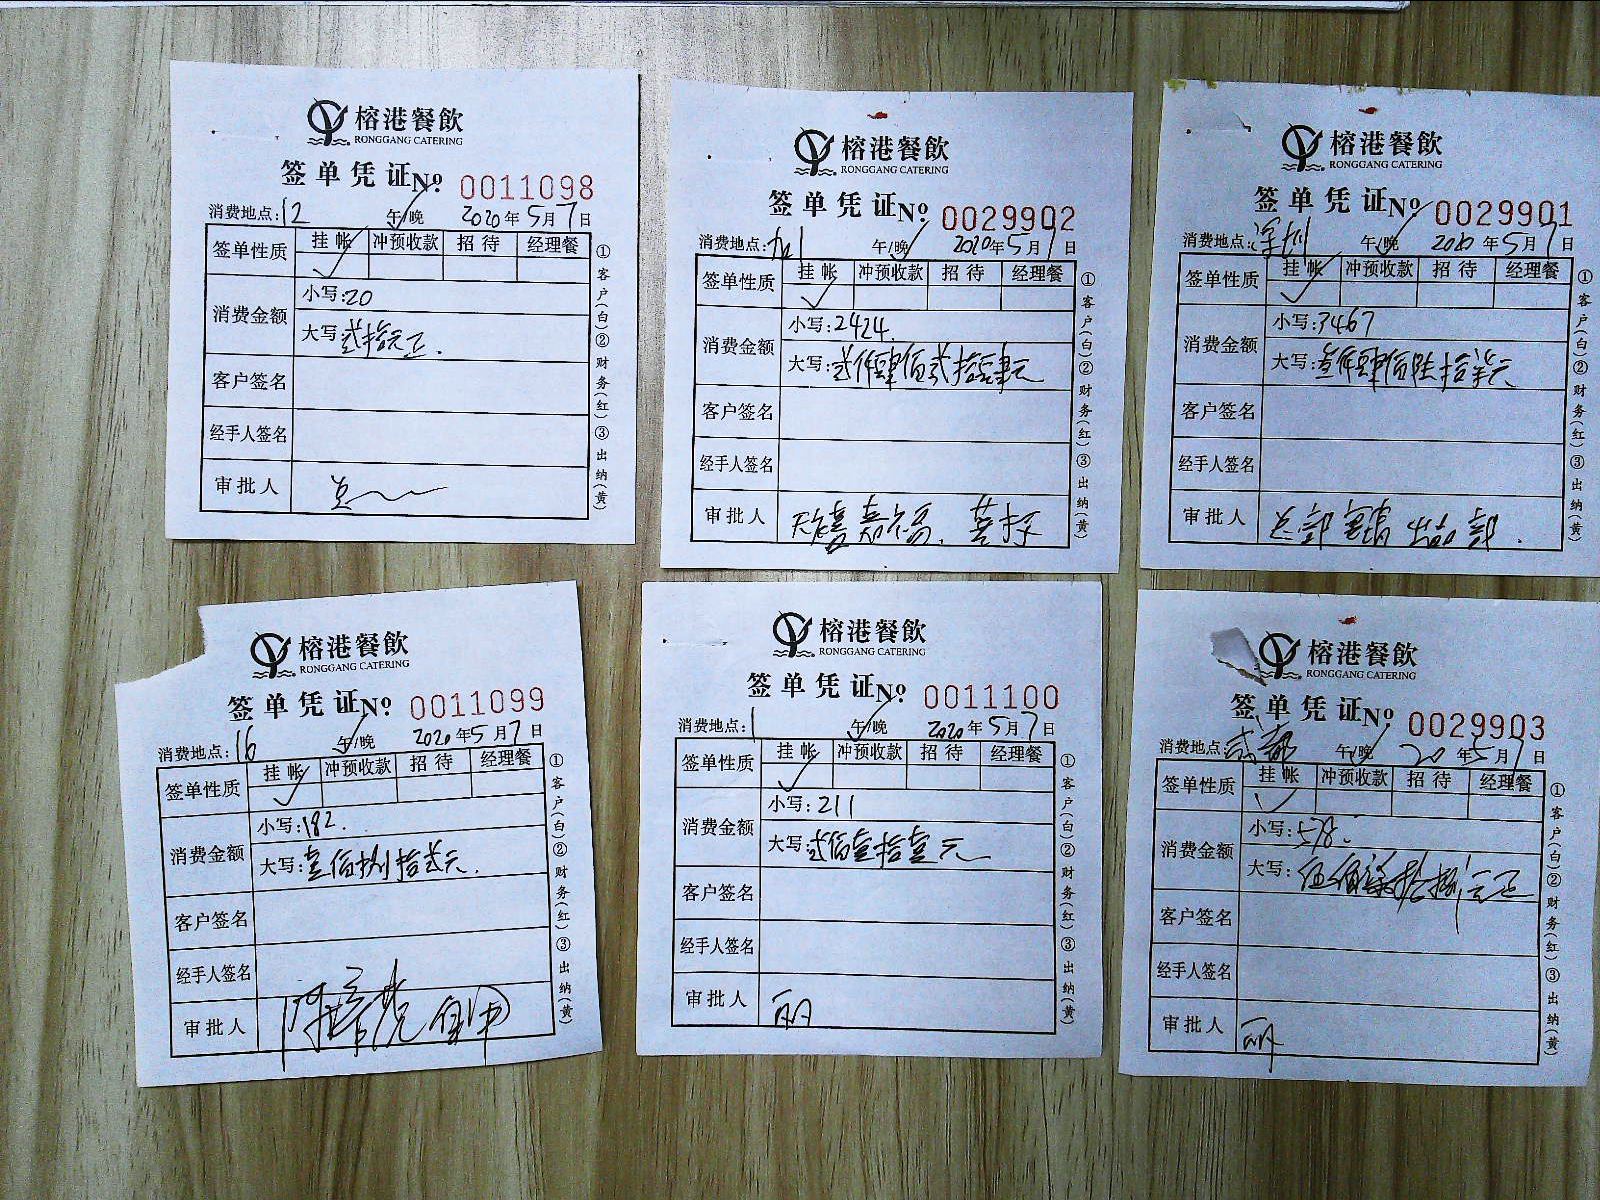 榕港餐飲
RONGGANG CATERING
签单凭证№ 0011098
消费地点:12 午/晚 2020年5月7日
签单性质 挂帐 冲预收款 招待 经理餐
消费金额 小写:20
大写:贰拾元正.
客户签名
经手人签名
审批人
①客户(白)②财务(红)③出纳(黄)
榕港餐飲
RONGGANG CATERING
签单凭证№ 0029902
消费地点: 午/晚 2020年5月7日
签单性质 挂帐 冲预收款 招待 经理餐
消费金额 小写:2424.
大写:贰仟肆佰贰拾肆元
客户签名
经手人签名
审批人
①客户(白)②财务(红)③出纳(黄)
榕港餐飲
RONGGANG CATERING
签单凭证№ 0029901
消费地点:深圳 午/晚 2020年5月7日
签单性质 挂帐 冲预收款 招待 经理餐
消费金额 小写:3467
大写:叁仟肆佰陆拾柒元
客户签名
经手人签名
审批人
①客户(白)②财务(红)③出纳(黄)
榕港餐飲
RONGGANG CATERING
签单凭证№ 0011099
消费地点:16 午/晚 2020年5月7日
签单性质 挂帐 冲预收款 招待 经理餐
消费金额 小写:182.
大写:壹佰捌拾贰元.
客户签名
经手人签名
审批人
①客户(白)②财务(红)③出纳(黄)
榕港餐飲
RONGGANG CATERING
签单凭证№ 0011100
消费地点:1 午/晚 2020年5月7日
签单性质 挂帐 冲预收款 招待 经理餐
消费金额 小写:211
大写:贰佰壹拾壹元
客户签名
经手人签名
审批人 丽
①客户(白)②财务(红)③出纳(黄)
榕港餐飲
RONGGANG CATERING
签单凭证№ 0029903
消费地点:成都 午/晚 20年5月7日
签单性质 挂帐 冲预收款 招待 经理餐
消费金额 小写:578.
大写:伍佰柒拾捌元正
客户签名
经手人签名
审批人 丽
①客户(白)②财务(红)③出纳(黄)